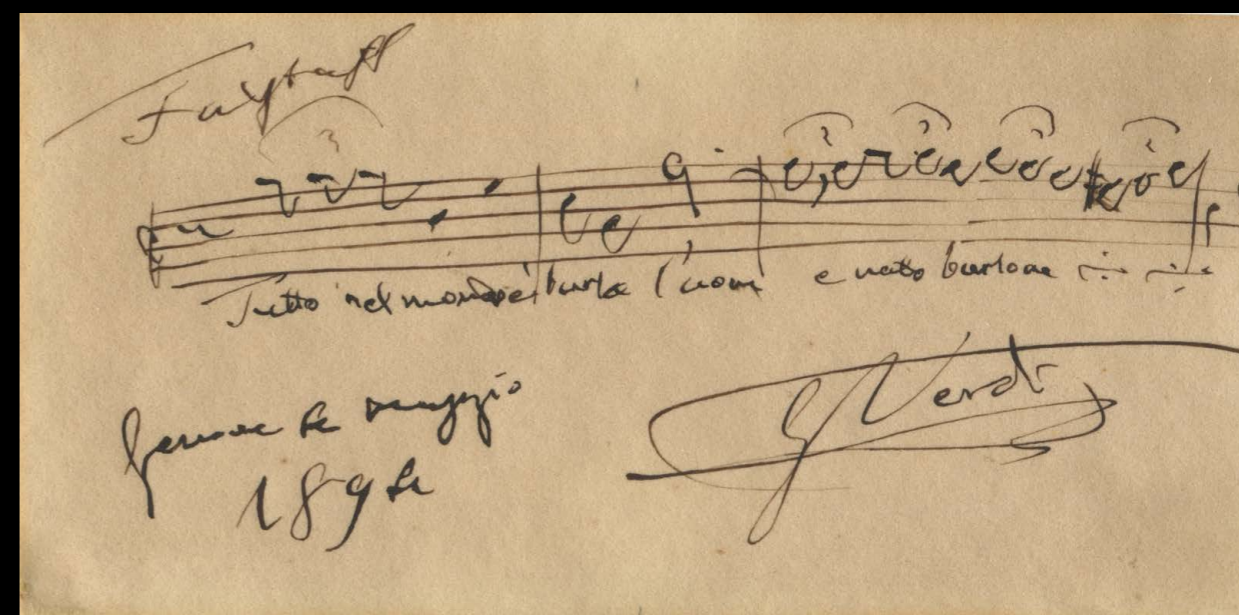 Falstaff
3 3 3 3 3
Tutto nel mondo è burla l'uom è nato burlone
Genova 4 maggio
1894
G Verdi